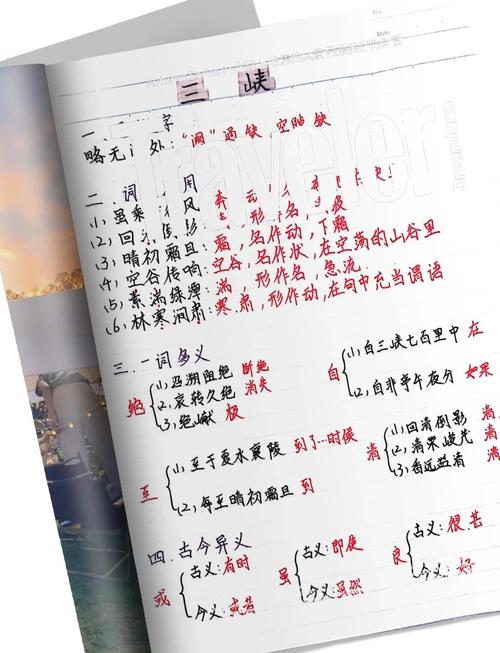 三 峡
一 字
略无 处:“阙”通缺 空 缺
二 词 用
(1)虽乘 风
(2)回 影 形作名,
(3)晴初霜旦:霜,名作动,下霜
(4)空谷传响:空谷,名作状,在空荡的山谷里
(5)素湍绿潭:湍,形作名,急流
(6)林寒涧肃:寒肃,形作动,在句中充当谓语
三.一词多义
绝
(1)沿溯阻绝 断绝
(2)哀转久绝 消失
(3)绝巘 极
自
(1)自三峡七百里中 在
(2)自非亭午夜分 如果
至
(1)至于夏水襄陵 到了…时候
(2)每至晴初霜旦 到
清
(1)回清倒影 清
(2)清荣峻茂 清
(3)自远益清 清
四.古今异义
或
古义:有时
今义:或者
虽
古义:即使
今义:虽然
良
古义:很 甚
今义:好
Traveler
Date